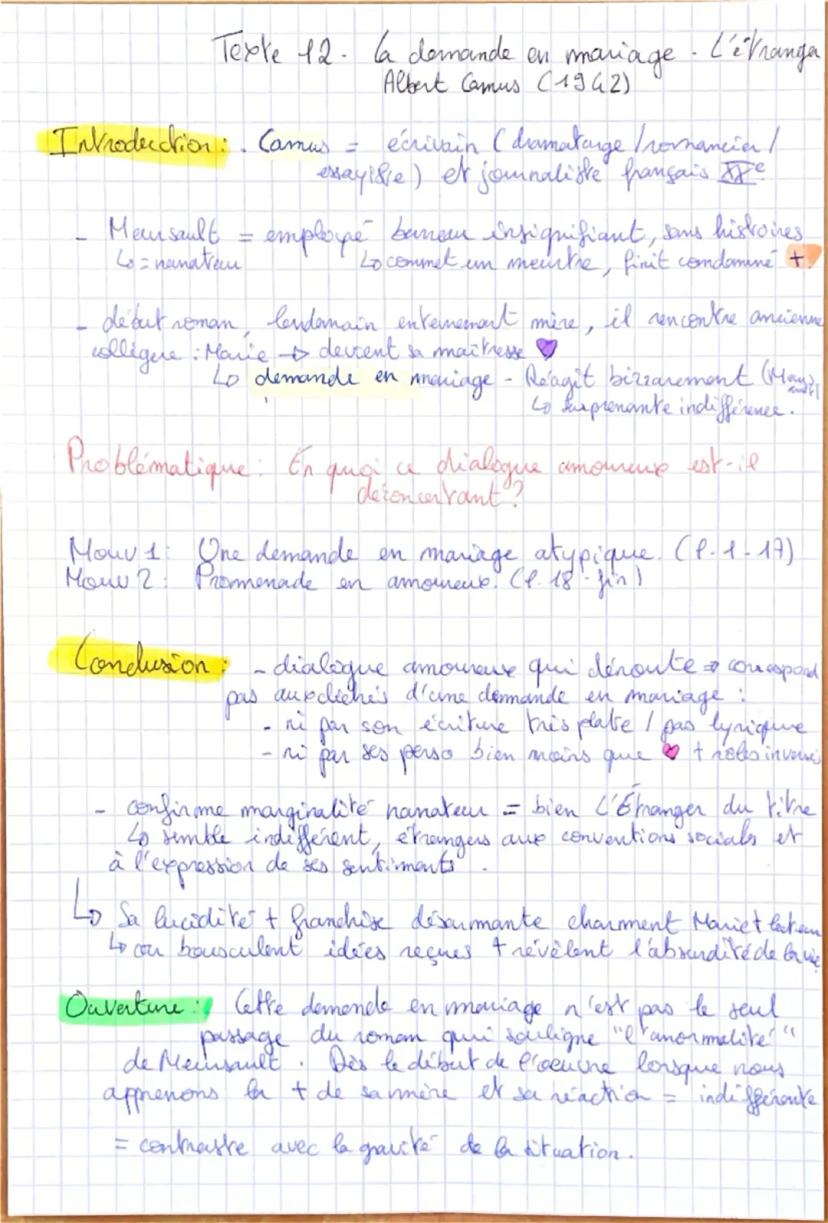 Texte 12 - La demande en mariage - L'étranger
Albert Camus (1942)
Introduction : . Camus = écrivain (dramaturge / romancier /
essayiste) et journaliste français XXe
- Meursault = employé bureau insignifiant, sans histoires
↳ = narrateur ↳ commet un meurtre, finit condamné +.
- début roman, lendemain enterrement mère, il rencontre ancienne
collègue : Marie → devient sa maîtresse 💜
↳ demande en mariage - Réagit bizarrement (Meursault)
↳ surprenante indifférence.
Problématique : En quoi ce dialogue amoureux est-il
déroncertant ?
Mouv 1 : Une demande en mariage atypique. (l. 1 - 17)
Mouv 2 : Promenade en amoureux. (l. 18 - fin)
Conclusion : - dialogue amoureux qui déroute ⇒ correspond
pas aux clichés d'une demande en mariage :
- ni par son écriture très plate / pas lyrique
- ni par ses perso bien moins que ♥ + rôles inversés
- confirme marginalité narrateur = bien L'Étranger du titre
↳ semble indifférent, étrangers aux conventions sociales et
à l'expression de ses sentiments.
↳ Sa lucidité + franchise désarmante charment Marie + lecteur
↳ ou bousculent idées reçues + révèlent l'absurdité de la vie
Ouverture : Cette demande en mariage n'est pas le seul
passage du roman qui souligne "l'anormalité"
de Meursault. Dès le début de l'oeuvre lorsque nous
apprenons la + de sa mère et sa réaction = indifférente
= contraste avec la gravité de la situation.